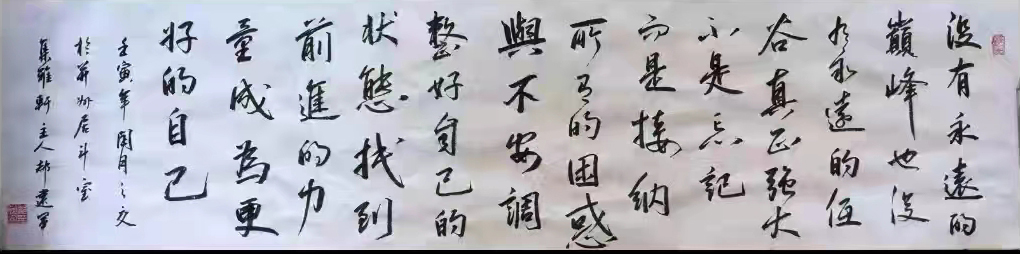 没有永遠的
巔峰也没
有永遠的低
谷真正强大
不是忘記
而是接納
所有的困惑
與不安調
整好自己的
狀態找到
前進的力
量成為更
好的自己
壬寅年閏月之文
於并州居斗室
集雅軒主人